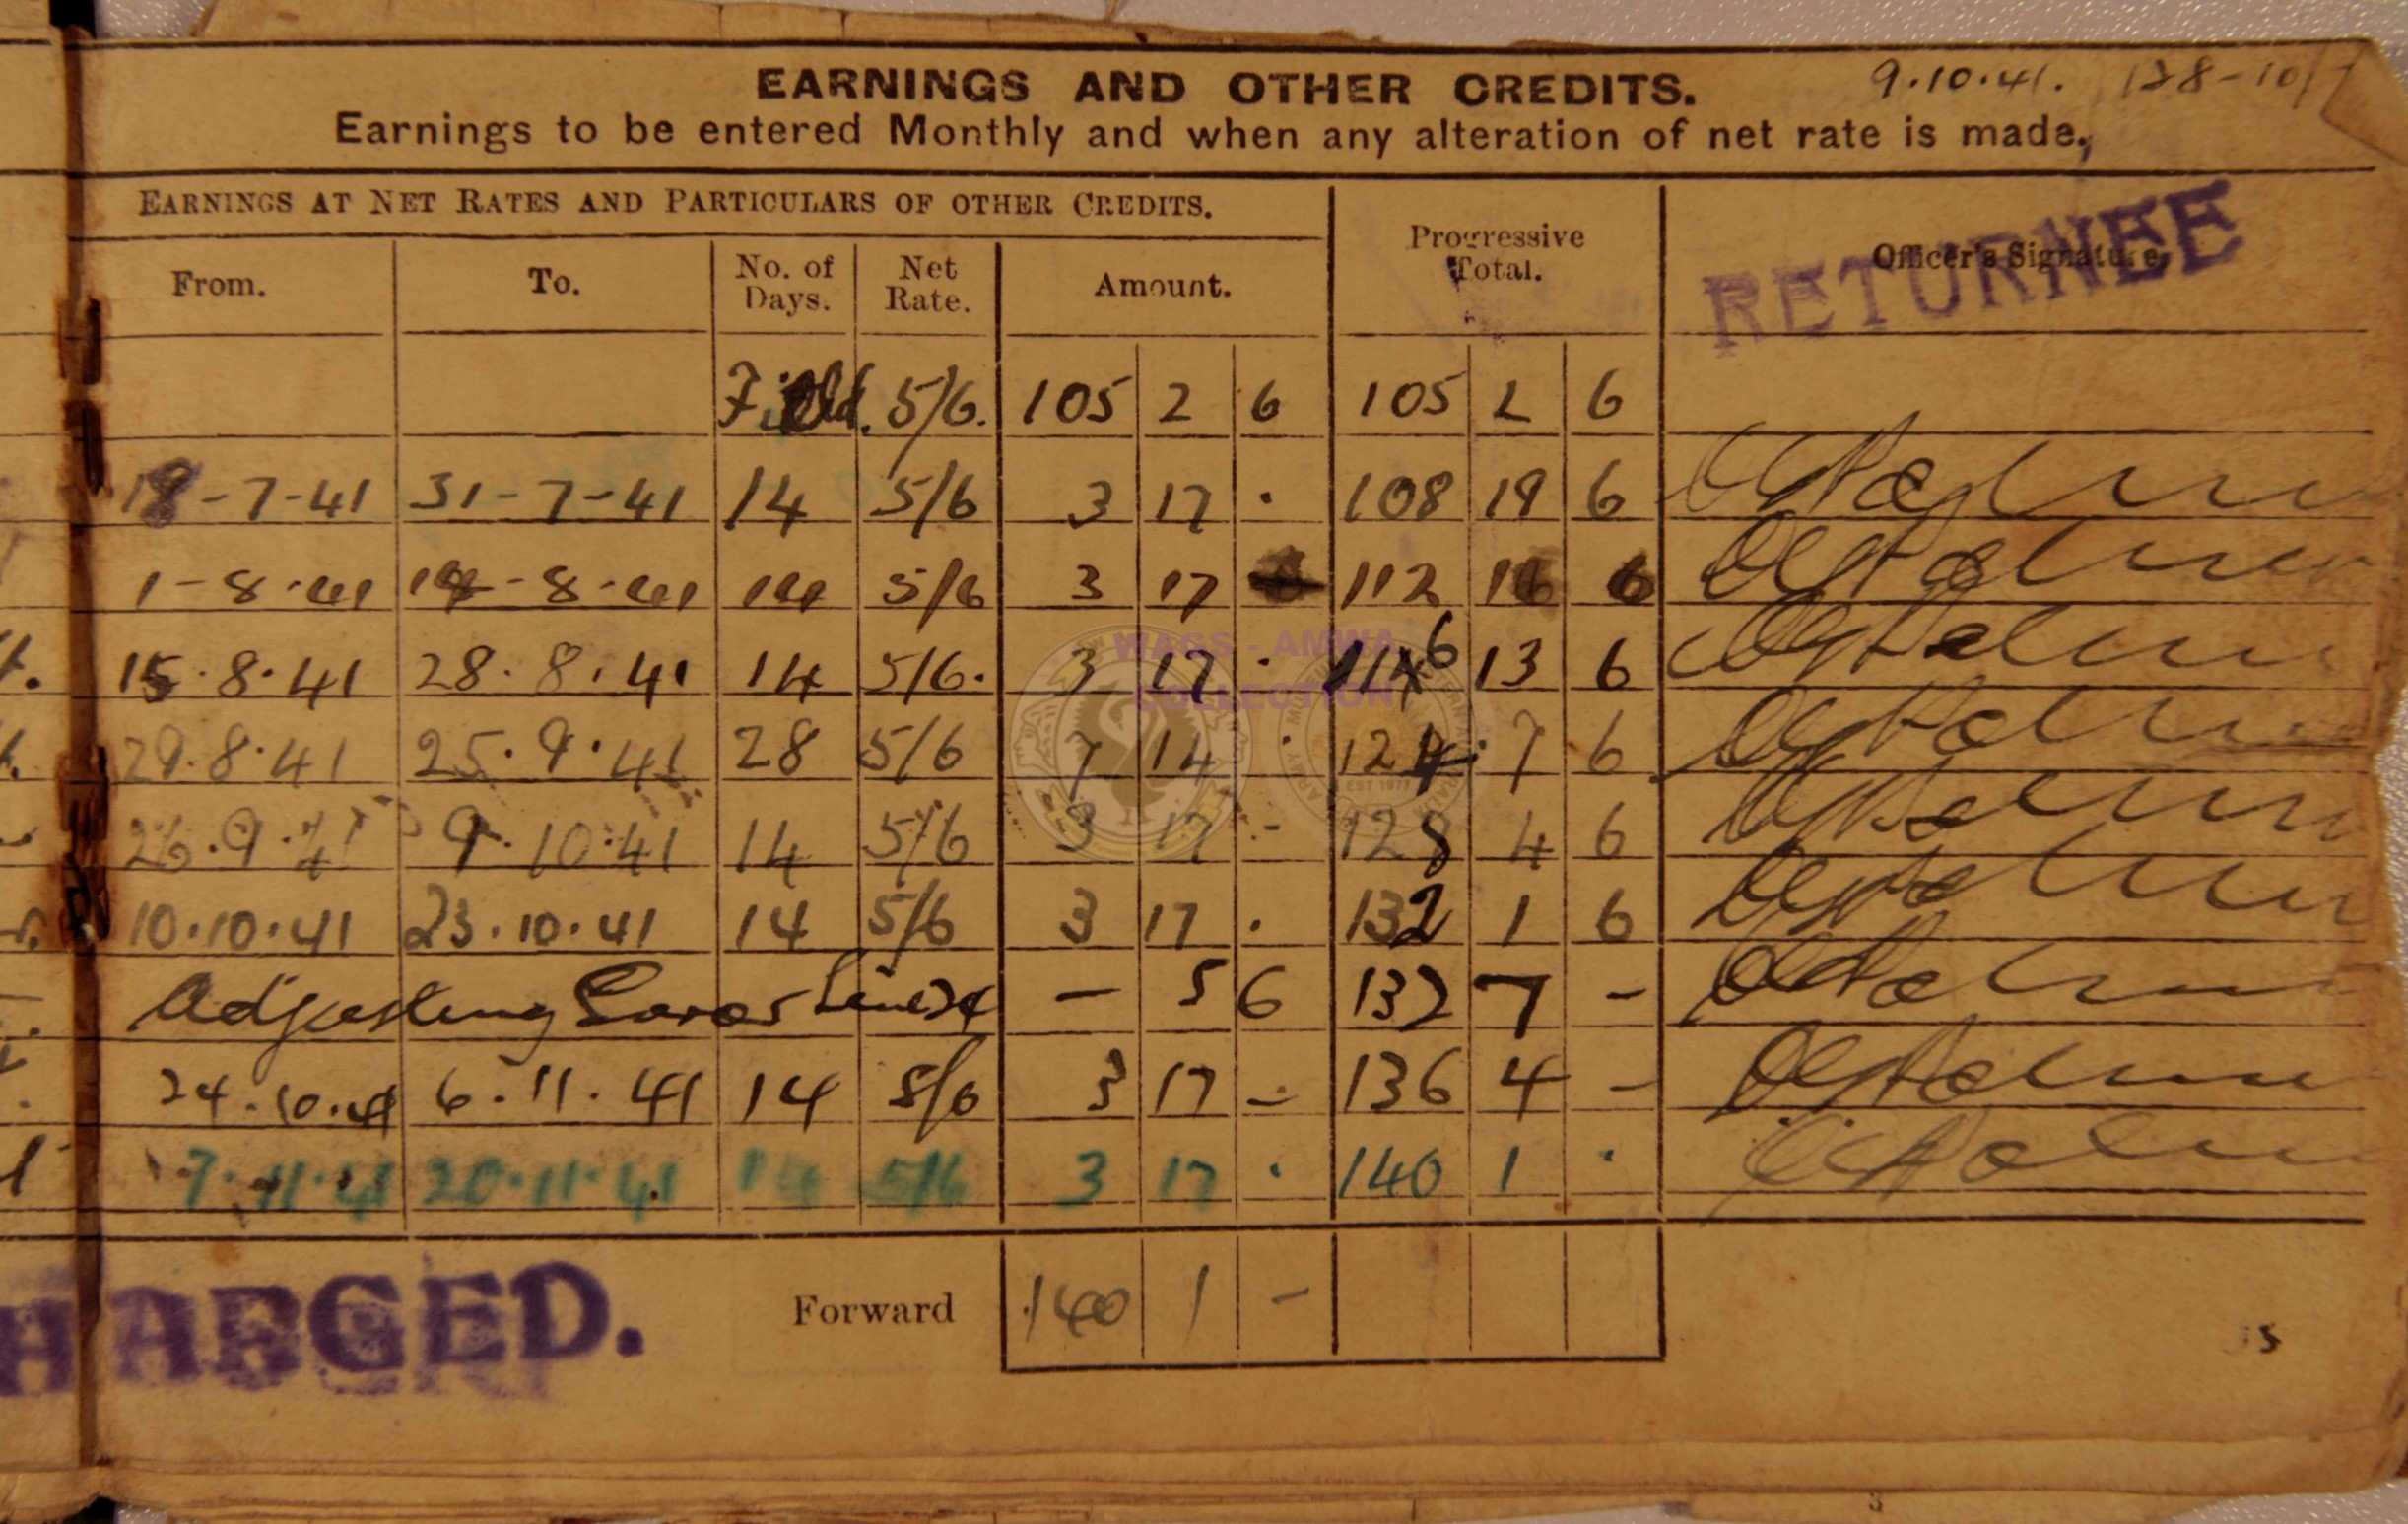 EARNINGS AND OTHER CREDITS. 9.10.41.
Earnings to be entered Monthly and when any alteration of net rate is made.
EARNINGS AT NET RATES AND PARTICULARS OF OTHER CREDITS.
Progressive Total.
Officer's Signature.
RETURNEE
From. To. No. of Days. Net Rate. Amount.
Field. 5/6. 105 2 6 105 2 6
18-7-41 31-7-41 14 5/6 3 17 . 108 19 6
1-8-41 14-8-41 14 5/6 3 17 112 16 6
15.8.41 28.8.41 14 5/6. 3 17 . 116 13 6
29.8.41 25.9.41 28 5/6 7 14 . 124 7 6
26.9.41 9.10.41 14 5/6 3 17 - 128 4 6
10.10.41 23.10.41 14 5/6 3 17 . 132 1 6
Adjusting - 5 6 132 7 -
24.10.41 6.11.41 14 5/6 3 17 - 136 4 -
7.11.41 20.11.41 14 5/6 3 17 . 140 1 .
Forward 140 1 -
HARGED.
WAGS - AMWA
COLLECTION